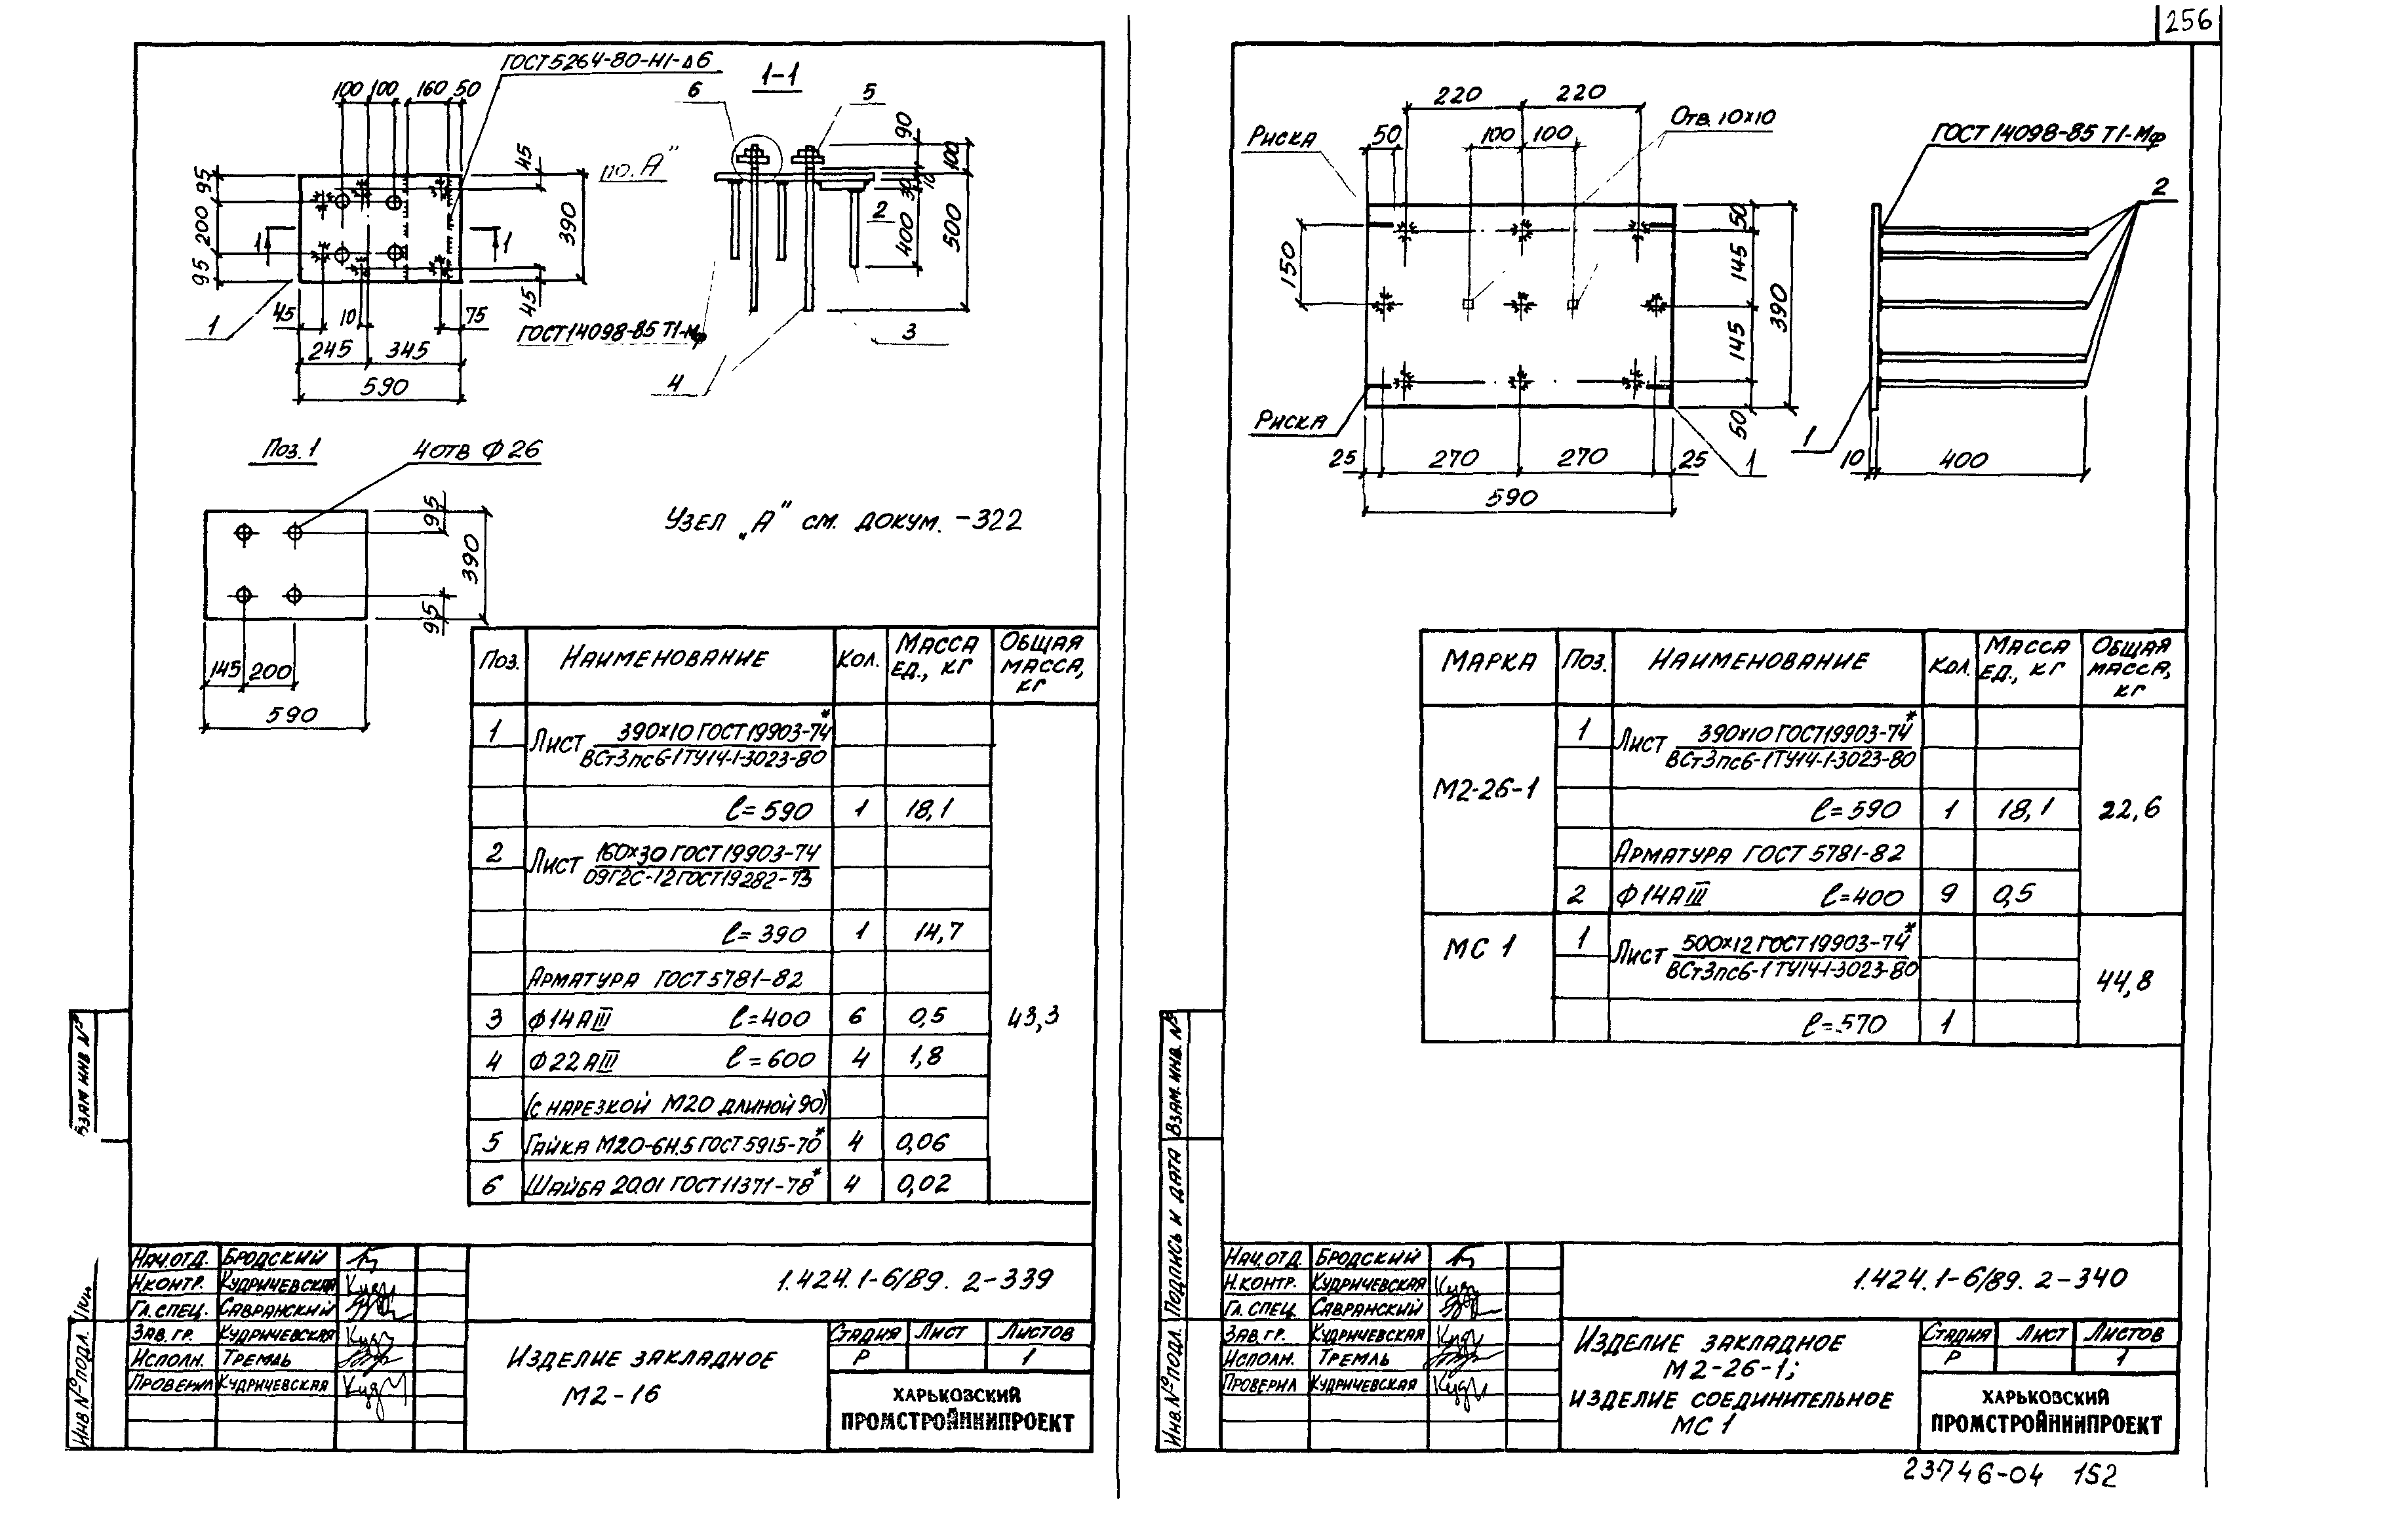 256
ГОСТ 5264-80-Н1-Δ6
1-1
100 100 160 50
6 5
95 200 95
45 390 45
по „А"
90 100
30 10
2
400 500
1 1
45 10 75
245 345
590
1
ГОСТ 14098-85 Т1-Мф
4
3
Поз. 1
4 отв Ф 26
95
390
95
145 200
590
Узел „А" см. докум. -322
Поз. Наименование Кол. Масса ед., кг Общая масса, кг
1 Лист 390×10 ГОСТ 19903-74*
ВСт3пс6-1 ТУ14-1-3023-80
ℓ=590 1 18,1
2 Лист 160×30 ГОСТ 19903-74
09Г2С-12 ГОСТ 19282-73
ℓ=390 1 14,7
Арматура ГОСТ 5781-82
3 Ф14АIII ℓ=400 6 0,5 43,3
4 Ф22АIII ℓ=600 4 1,8
(с нарезкой М20 длиной 90)
5 Гайка М20-6Н.5 ГОСТ 5915-70* 4 0,06
6 Шайба 20.01 ГОСТ 11371-78* 4 0,02
Взам инв №
Инв № подл.
Нач. отд. Бродский
Н.контр. Кудричевская
Гл. спец. Савранский
Зав. гр. Кудричевская
Исполн. Тремль
Проверил Кудричевская
1.424.1-6/89. 2-339
Изделие закладное
М2-16
Стадия Лист Листов
Р 1
ХАРЬКОВСКИЙ
ПРОМСТРОЙНИИПРОЕКТ
220 220
Риска 50
100 100
Отв. 10×10
ГОСТ 14098-85 Т1-Мф
2
150
50 145 145 50
390
Риска
25 270 270 25
590
1
1
10 400
Марка Поз. Наименование Кол. Масса ед., кг Общая масса, кг
М2-26-1 1 Лист 390×10 ГОСТ 19903-74*
ВСт3пс6-1 ТУ14-1-3023-80
ℓ=590 1 18,1 22,6
Арматура ГОСТ 5781-82
2 Ф14АIII ℓ=400 9 0,5
МС 1 1 Лист 500×12 ГОСТ 19903-74*
ВСт3пс6-1 ТУ14-1-3023-80
44,8
ℓ=570 1
Взам. инв. №
Подпись и дата
Инв. № подл.
Нач. отд. Бродский
Н.контр. Кудричевская
Гл. спец. Савранский
Зав. гр. Кудричевская
Исполн. Тремль
Проверил Кудричевская
1.424.1-6/89. 2-340
Изделие закладное
М2-26-1;
Изделие соединительное
МС 1
Стадия Лист Листов
Р 1
ХАРЬКОВСКИЙ
ПРОМСТРОЙНИИПРОЕКТ
23746-04 152